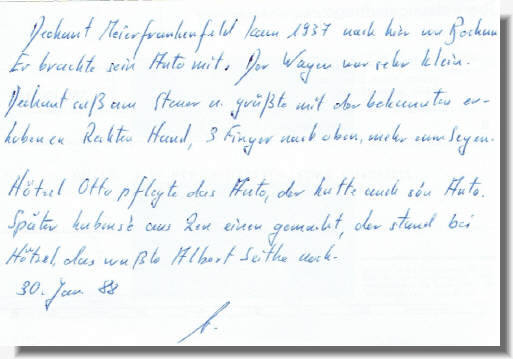 Dechant Meierfrankenfeld kam 1937 nach hier von Bochum
Er brachte sein Auto mit. Der Wagen war sehr klein.
Dechant saß am Steuer u. grüßte mit der bekannten er-
hobenen Rechten Hand, 3 Finger nach oben, mehr zum Segen.
Hötzel Otto pflegte das Auto, der hatte auch so'n Auto.
Später habense aus 2en einen gemacht, der stand bei
Hötzel, das wußte Albert Seithe noch.
30. Jan. 88